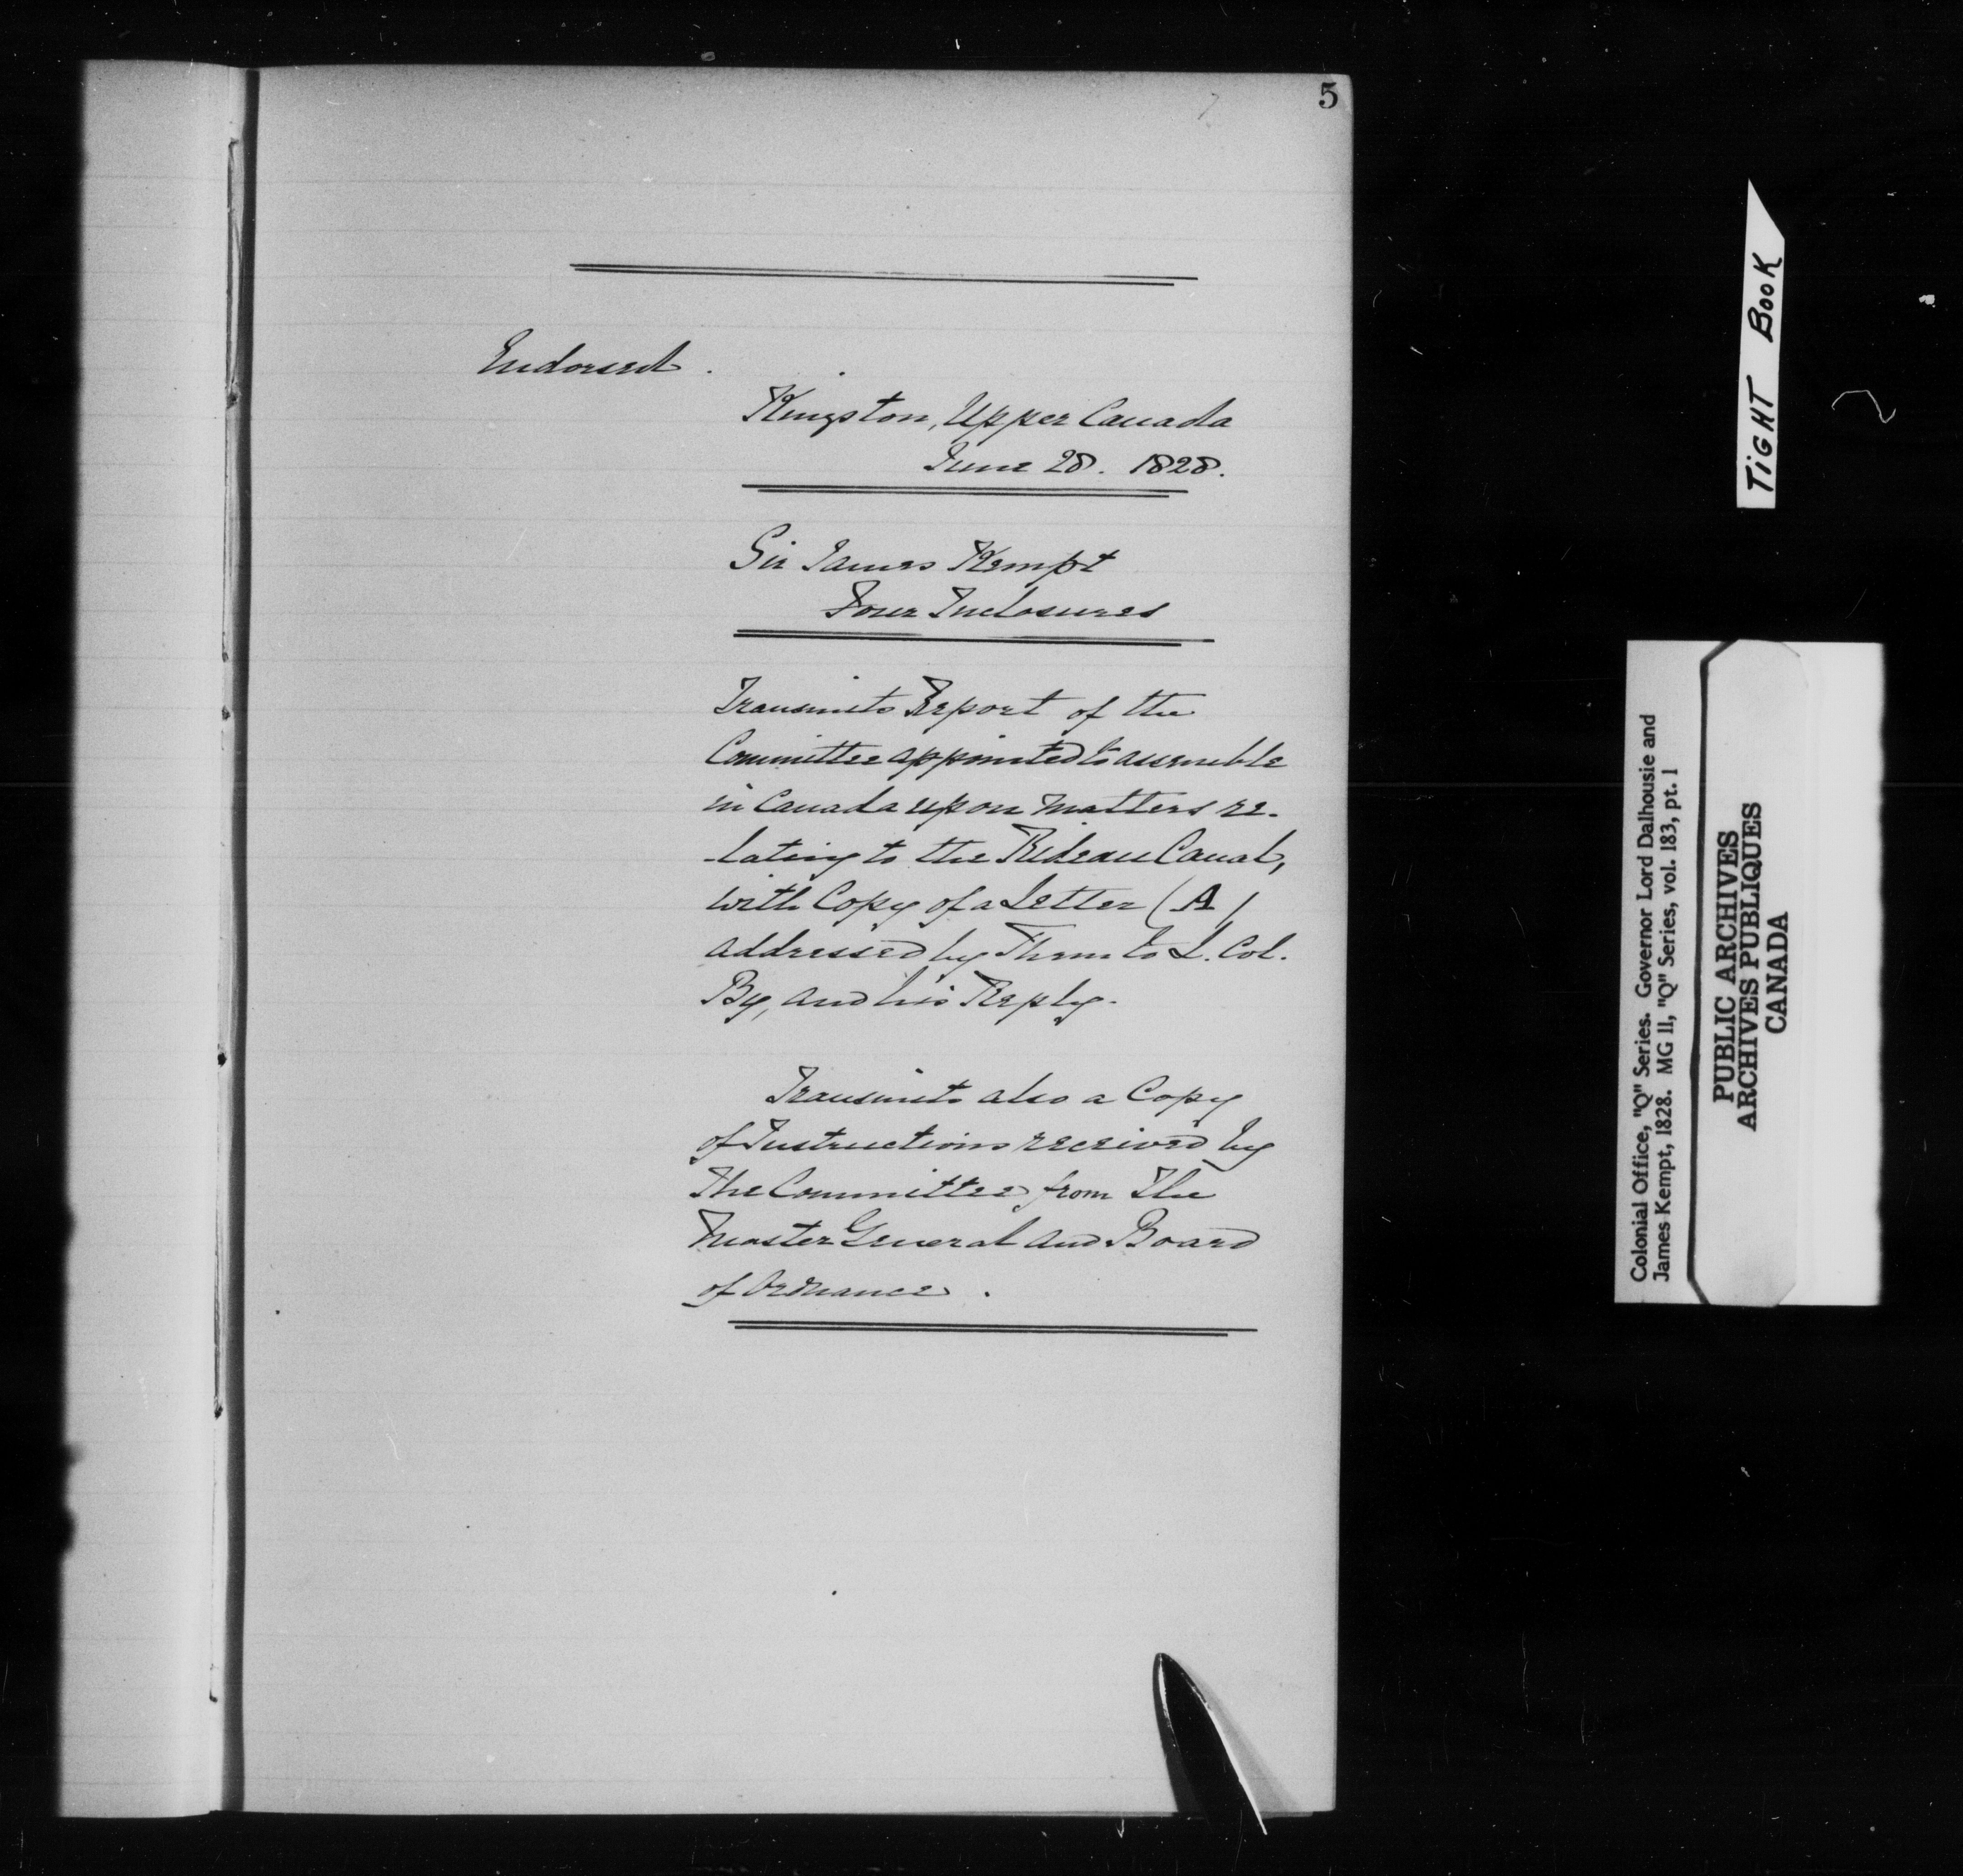 5
Endorsed.
Kingston, Upper Canada
June 28. 1828.
Sir James Kempt
Four Inclosures
Transmits Report of the
Committee appointed to assemble
in Canada upon matters re-
-lating to the Rideau Canal,
with Copy of a Letter (A)
addressed by Them to L. Col.
By, and his Reply.
Transmits also a Copy
of Instructions received by
The Committee from The
Master General and Board
of Ordnance.
TIGHT BOOK
Colonial Office, "Q" Series. Governor Lord Dalhousie and
James Kempt, 1828. MG 11, "Q" Series, vol. 183, pt. 1
PUBLIC ARCHIVES
ARCHIVES PUBLIQUES
CANADA